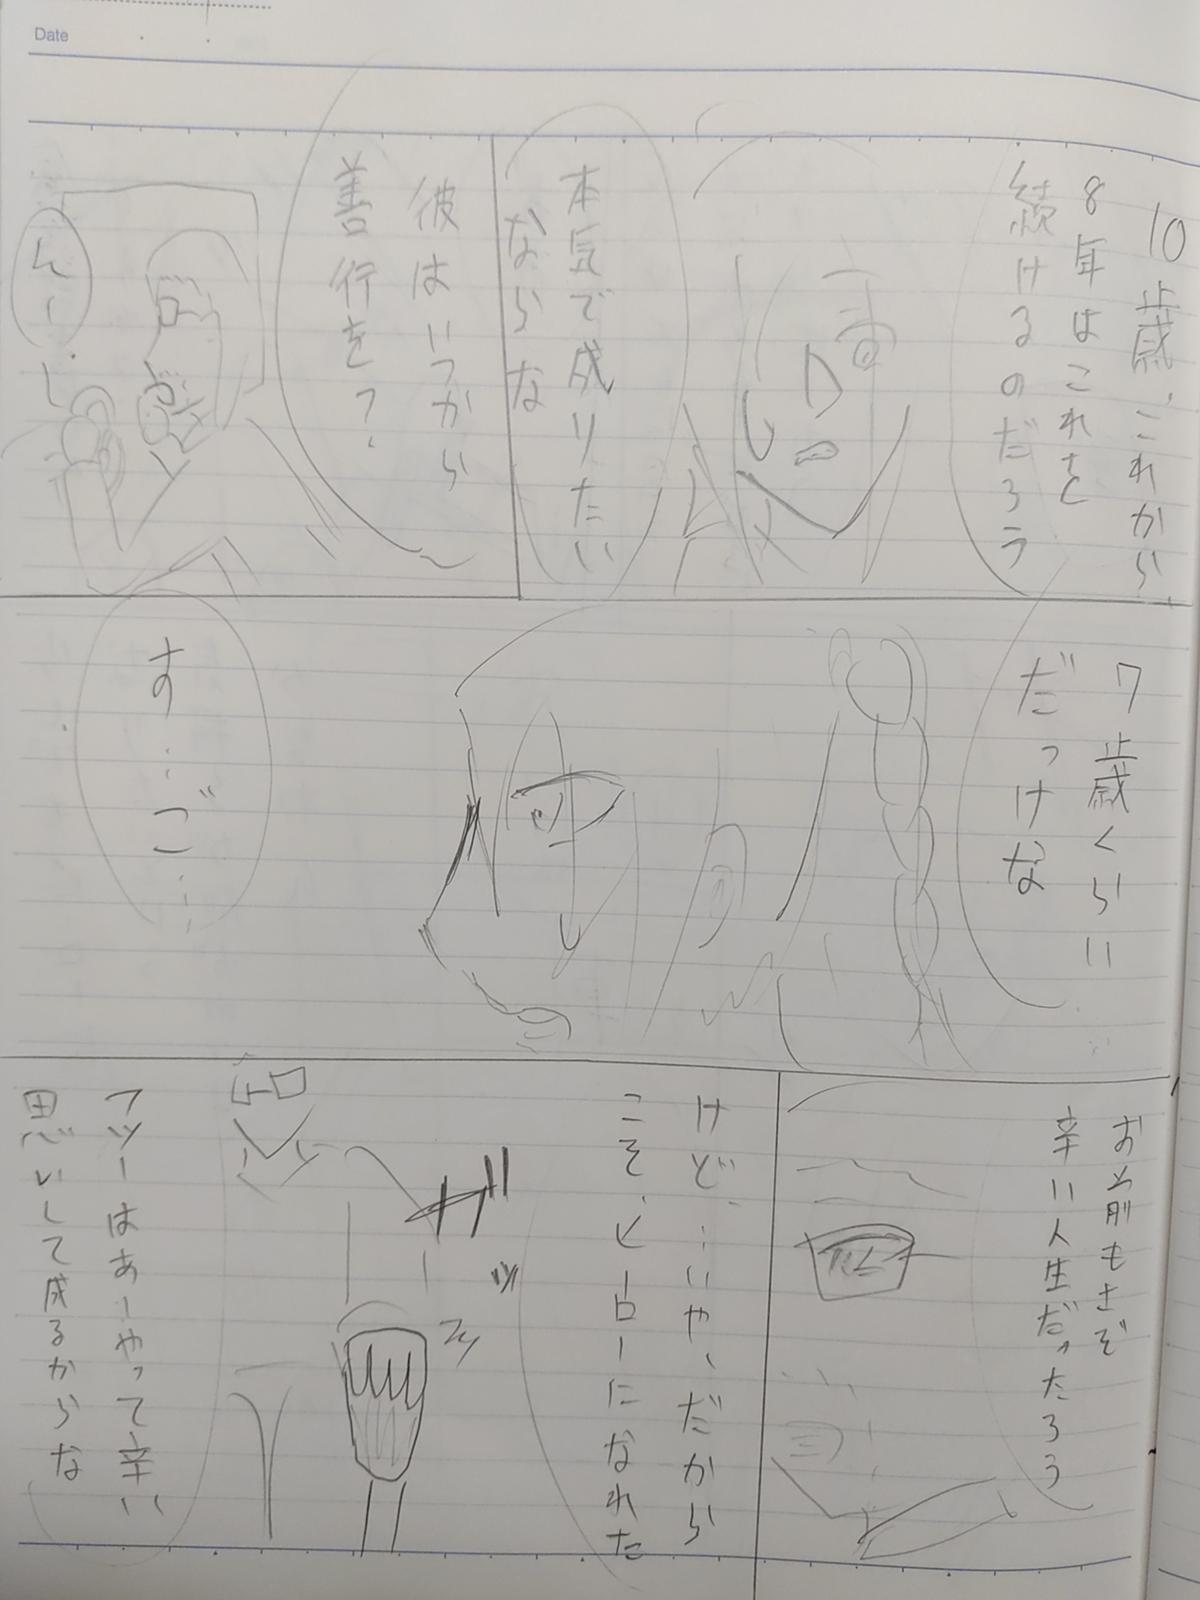 Date
10歳、これから
8年はこれを
続けるのだろう
本気で成りたい
ならな
彼はいつから
善行を?
んー
7歳くらい
だっけな
す…ご…
お前もさぞ
辛い人生だったろう
けど…いや、だから
こそ、ヒーローになれた
ザッ
アツーはあーやって辛い
思いして成るからな